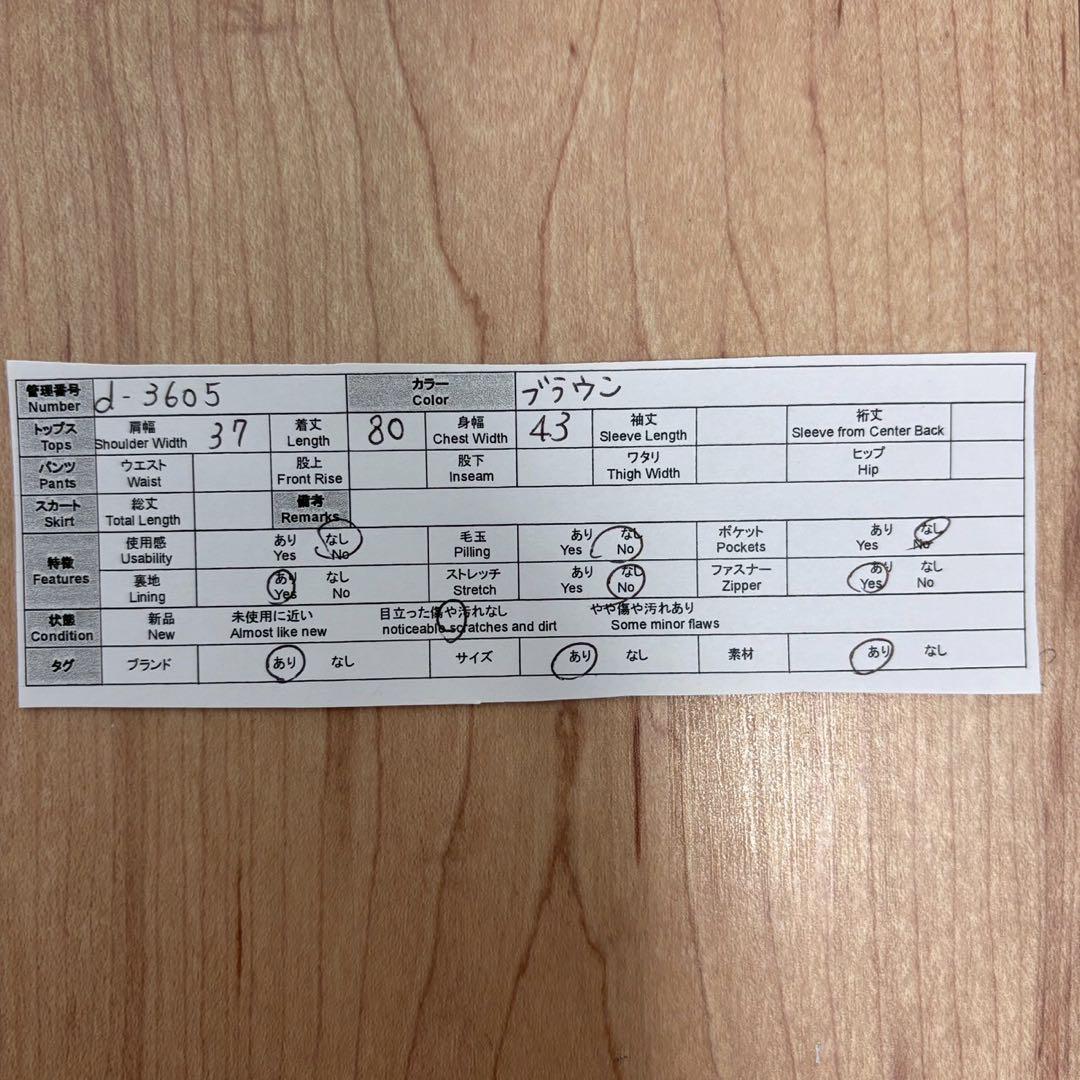 管理番号 Number d-3605 カラー Color ブラウン
トップス Tops 肩幅 Shoulder Width 37 着丈 Length 80 身幅 Chest Width 43 袖丈 Sleeve Length 裄丈 Sleeve from Center Back
パンツ Pants ウエスト Waist 股上 Front Rise 股下 Inseam ワタリ Thigh Width ヒップ Hip
スカート Skirt 総丈 Total Length 備考 Remarks
特徴 Features 使用感 Usability あり Yes なし No 毛玉 Pilling あり Yes なし No ポケット Pockets あり Yes なし No
裏地 Lining あり Yes なし No ストレッチ Stretch あり Yes なし No ファスナー Zipper あり Yes なし No
状態 Condition 新品 New 未使用に近い Almost like new 目立った傷や汚れなし noticeable scratches and dirt やや傷や汚れあり Some minor flaws
タグ ブランド あり なし サイズ あり なし 素材 あり なし